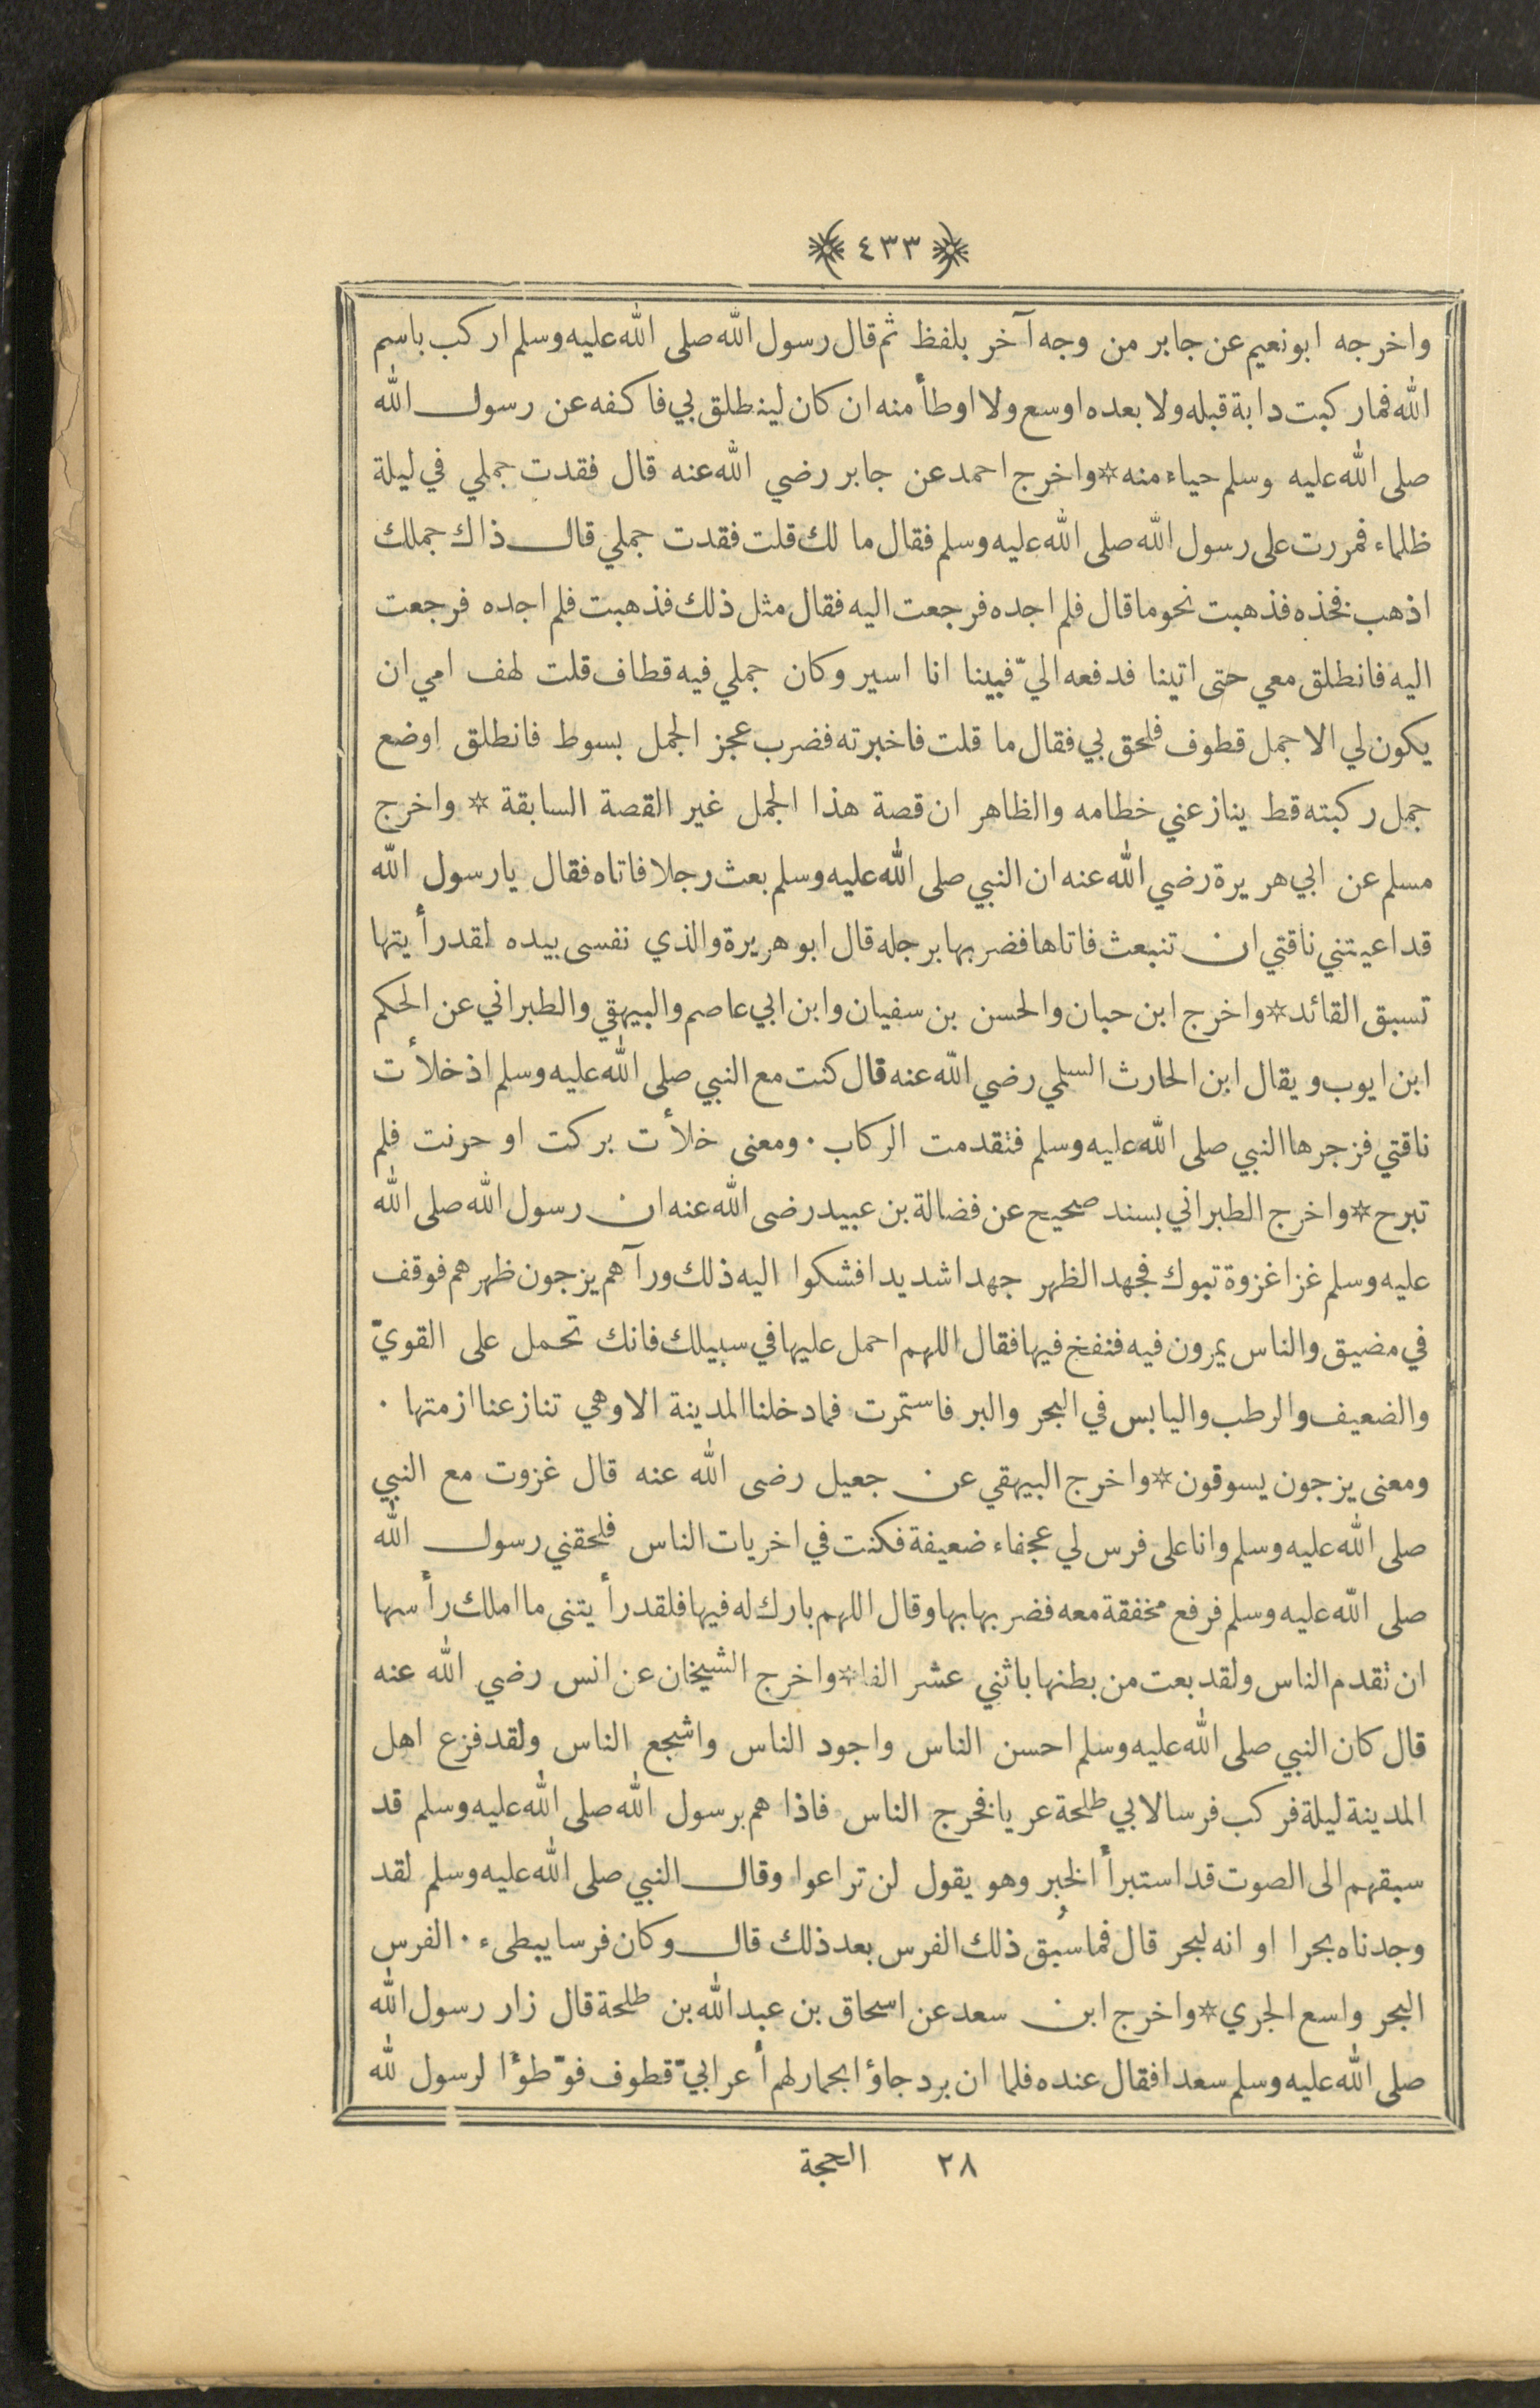 ٤٣٣
واخرجه ابونعيم عن جابر من وجه آخر بلفظ ثم قال رسول الله صلى الله عليه وسلم اركب باسم
الله فماركبت دابة قبله ولا بعده اوسع ولا اوطأ منه ان كان لينطلق بي فاكفه عن رسول الله
صلى الله عليه وسلم حياء منه * واخرج احمد عن جابر رضي الله عنه قال فقدت جملي في ليلة
ظلماء فمررت على رسول الله صلى الله عليه وسلم فقال ما لك قلت فقدت جملي قال ذاك جملك
اذهب فخذه فذهبت نحوما قال فلم اجده فرجعت اليه فقال مثل ذلك فذهبت فلم اجده فرجعت
اليه فانطلق معي حتى اتينا فدفعه اليّ فبينا انا اسير وكان جملي فيه قطاف قلت لهف امي ان
يكون لي الا جمل قطوف فلحق بي فقال ما قلت فاخبرته فضرب عجز الجمل بسوط فانطلق اوضع
جمل ركبته قط ينازعني خطامه والظاهر ان قصة هذا الجمل غير القصة السابقة * واخرج
مسلم عن ابي هريرة رضي الله عنه ان النبي صلى الله عليه وسلم بعث رجلا فاتاه فقال يا رسول الله
قد اعيتني ناقتي ان تنبعث فاتاها فضربها برجله قال ابو هريرة والذي نفسى بيده لقد رأيتها
تسبق القائد * واخرج ابن حبان والحسن بن سفيان وابن ابي عاصم والبيهقي والطبراني عن الحكم
ابن ايوب ويقال ابن الحارث السلمي رضي الله عنه قال كنت مع النبي صلى الله عليه وسلم اذ خلأت
ناقتي فزجرها النبي صلى الله عليه وسلم فتقدمت الركاب . ومعنى خلأت بركت او حرنت فلم
تبرح * واخرج الطبراني بسند صحيح عن فضالة بن عبيد رضى الله عنه ان رسول الله صلى الله
عليه وسلم غزا غزوة تبوك فجهد الظهر جهدا شديدا فشكوا اليه ذلك ورآهم يزجون ظهرهم فوقف
في مضيق والناس يمرون فيه فنفخ فيها فقال اللهم احمل عليها في سبيلك فانك تحمل على القويّ
والضعيف والرطب واليابس في البحر والبر فاستمرت فما دخلنا المدينة الا وهي تنازعنا ازمتها .
ومعنى يزجون يسوقون * واخرج البيهقي عن جعيل رضى الله عنه قال غزوت مع النبي
صلى الله عليه وسلم وانا على فرس لي عجفاء ضعيفة فكنت في اخريات الناس فلحقني رسول الله
صلى الله عليه وسلم فرفع مخفقة معه فضربها بها وقال اللهم بارك له فيها فلقد رأيتنى ما املك رأسها
ان تقدم الناس ولقد بعت من بطنها باثني عشر الفا * واخرج الشيخان عن انس رضي الله عنه
قال كان النبي صلى الله عليه وسلم احسن الناس واجود الناس واشجع الناس ولقد فزع اهل
المدينة ليلة فركب فرسا لابي طلحة عريا فخرج الناس فاذا هم برسول الله صلى الله عليه وسلم قد
سبقهم الى الصوت قد استبرأ الخبر وهو يقول لن تراعوا وقال النبي صلى الله عليه وسلم لقد
وجدناه بحرا او انه لبحر قال فما سُبق ذلك الفرس بعد ذلك قال وكان فرسا يبطىء . الفرس
البحر واسع الجري * واخرج ابن سعد عن اسحاق بن عبد الله بن طلحة قال زار رسول الله
صلى الله عليه وسلم سعدا فقال عنده فلما ان برد جاؤا بحمار لهم أعرابيّ قطوف فوّطؤا لرسول لله
٢٨ الحجة